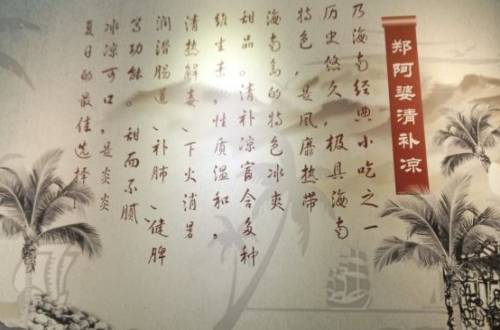 郑阿婆清补凉
乃海南经典小吃之一
历史悠久，极具海南
特色，是风靡热带
海南岛的特色冰爽
甜品。清补凉富含多种
维生素，性质温和，
清热解毒、下火消暑
润滑肠道、补肺、健脾
等功能。甜而不腻
冰凉可口，是炎炎
夏日的最佳选择！